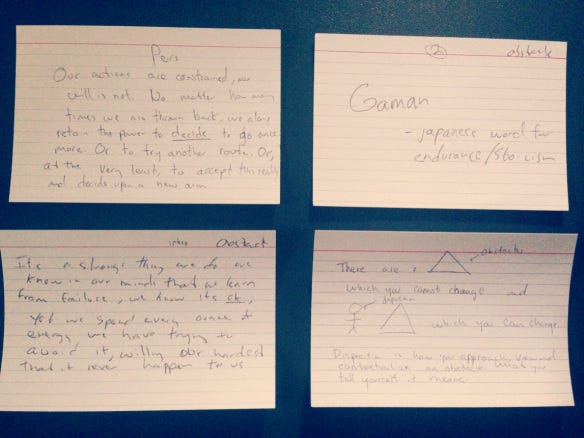 Pers
Our actions are constrained, our
will is not. No matter how many
times we are thrown back, we alone
retain the power to decide to go once
more. Or to try another route. Or,
at the very least, to accept this reality
and decide upon a new aim
② obstacle
Gaman
- japanese word for
endurance/Stoicism
intro
It's a strange thing we do we
know in our minds that we learn
from failure, we know its ok,
yet we spend every ounce of
energy we have trying to
avoid it, willing our hardest
that it never happen to us
obstacle
There are
which you cannot change and
which you can change.
Disposition is how you approach, view and
contextualize an obstacle. What you
tell yourself it means.